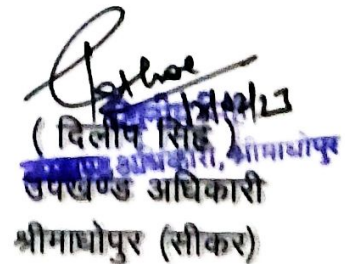 ( दिलीप सिंह )
उपखण्ड अधिकारी, श्रीमाधोपुर
उपखण्ड अधिकारी
श्रीमाधोपुर (सीकर)